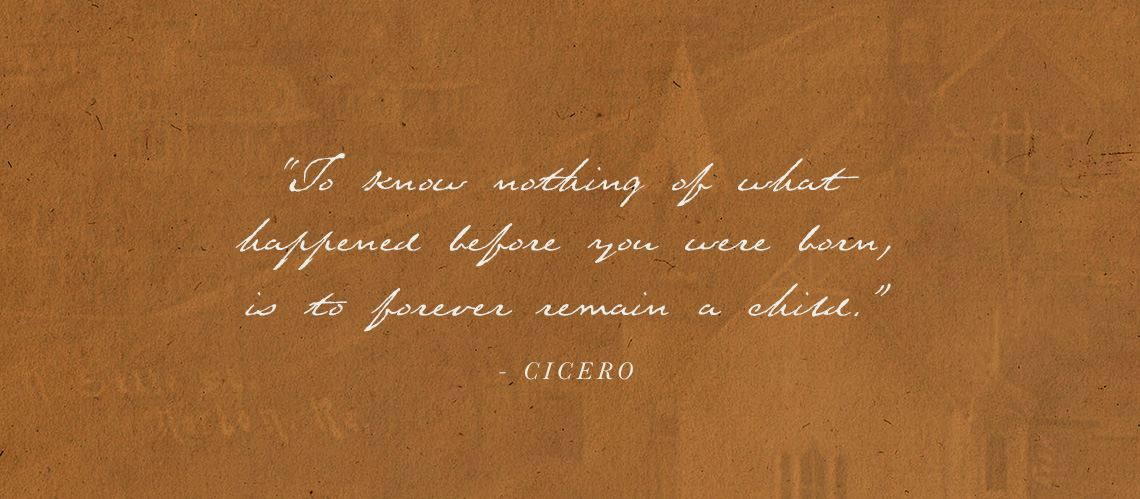 "To know nothing of what
happened before you were born,
is to forever remain a child."
- CICERO